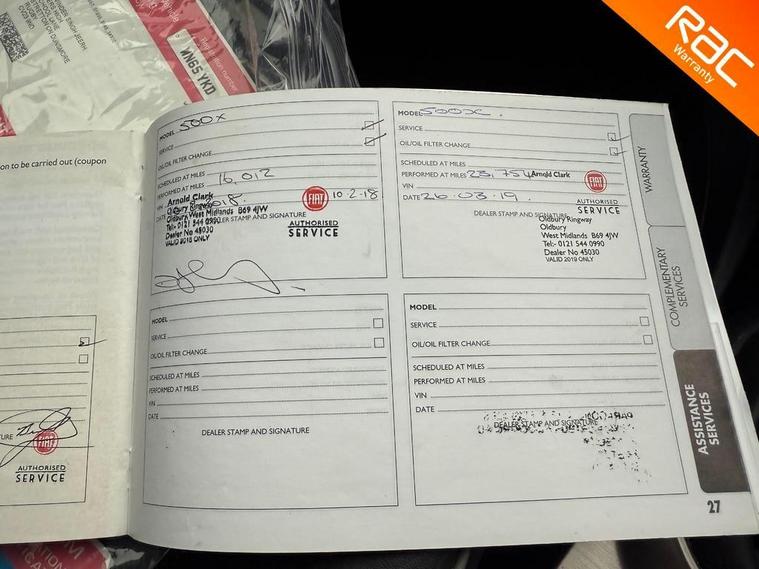 RAC
Warranty
RUGBY
CV23 9ND
Registration number
WN65 YKD
on to be carried out (coupon
AUTHORISED
SERVICE
MODEL 500X
SERVICE
OIL/OIL FILTER CHANGE
SCHEDULED AT MILES
PERFORMED AT MILES 16,012
VIN
DATE
10-2-18
Arnold Clark
Oldbury Ringway
Oldbury West Midlands B69 4JW
Tel:- 0121 544 0990
Dealer No 45030
VALID 2018 ONLY
DEALER STAMP AND SIGNATURE
FIAT
AUTHORISED
SERVICE
MODEL 500X.
SERVICE
OIL/OIL FILTER CHANGE
SCHEDULED AT MILES
PERFORMED AT MILES 23,754
VIN
DATE 26-03-19.
Arnold Clark
FIAT
AUTHORISED
SERVICE
DEALER STAMP AND SIGNATURE
Oldbury Ringway
Oldbury
West Midlands B69 4JW
Tel:- 0121 544 0990
Dealer No 45030
VALID 2019 ONLY
MODEL
SERVICE
OIL/OIL FILTER CHANGE
SCHEDULED AT MILES
PERFORMED AT MILES
VIN
DATE
DEALER STAMP AND SIGNATURE
MODEL
SERVICE
OIL/OIL FILTER CHANGE
SCHEDULED AT MILES
PERFORMED AT MILES
VIN
DATE
DEALER STAMP AND SIGNATURE
WARRANTY
COMPLEMENTARY
SERVICES
ASSISTANCE
SERVICES
27